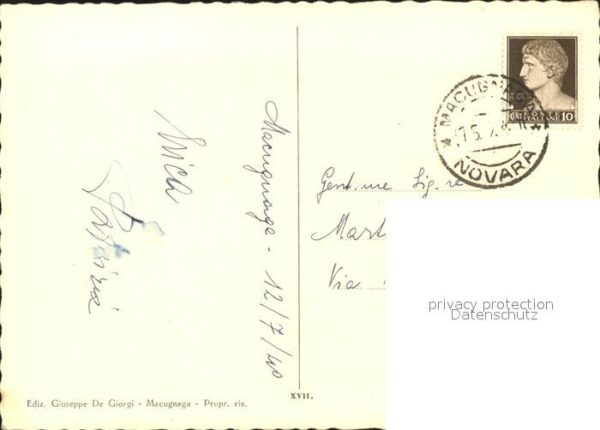 Macugnaga - 12/7/40
CENT. 10
MACUGNAGA
NOVARA
Gent.me Sig.re
Mart
Via
privacy protection
Datenschutz
XVII.
Ediz. Giuseppe De Giorgi - Macugnaga - Propr. ris.